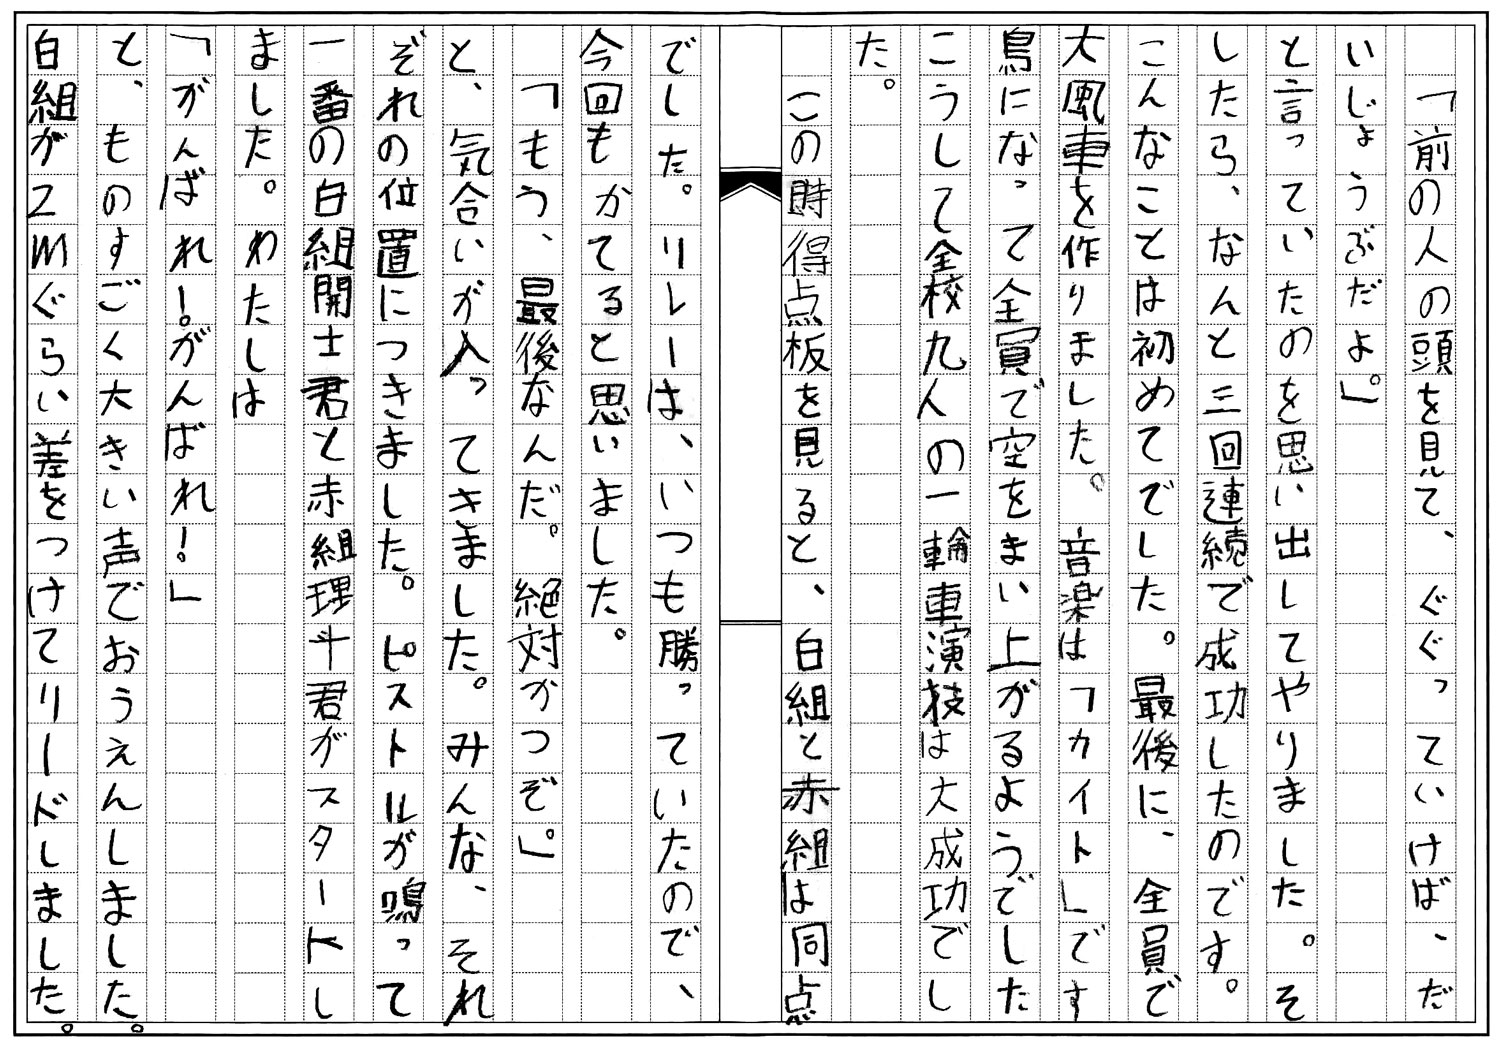 「前の人の頭を見て、ぐぐっていけば、だ
いじょうぶだよ。」
と言っていたのを思い出してやりました。そ
したら、なんと三回連続で成功したのです。
こんなことは初めてでした。最後に、全員で
大風車を作りました。音楽は「カイト」です
鳥になって全員で空をまい上がるようでした
こうして全校九人の一輪車演技は大成功でし
た。
この時得点板を見ると、白組と赤組は同点
でした。リレーは、いつも勝っていたので、
今回もかてると思いました。
「もう、最後なんだ。絶対かつぞ。」
と、気合いが入ってきました。みんな、それ
ぞれの位置につきました。ピストルが鳴って
一番の白組開士君と赤組理斗君がスタートし
ました。わたしは
「がんばれ！がんばれ！」
と、ものすごく大きい声でおうえんしました。
白組が2mぐらい差をつけてリードしました。